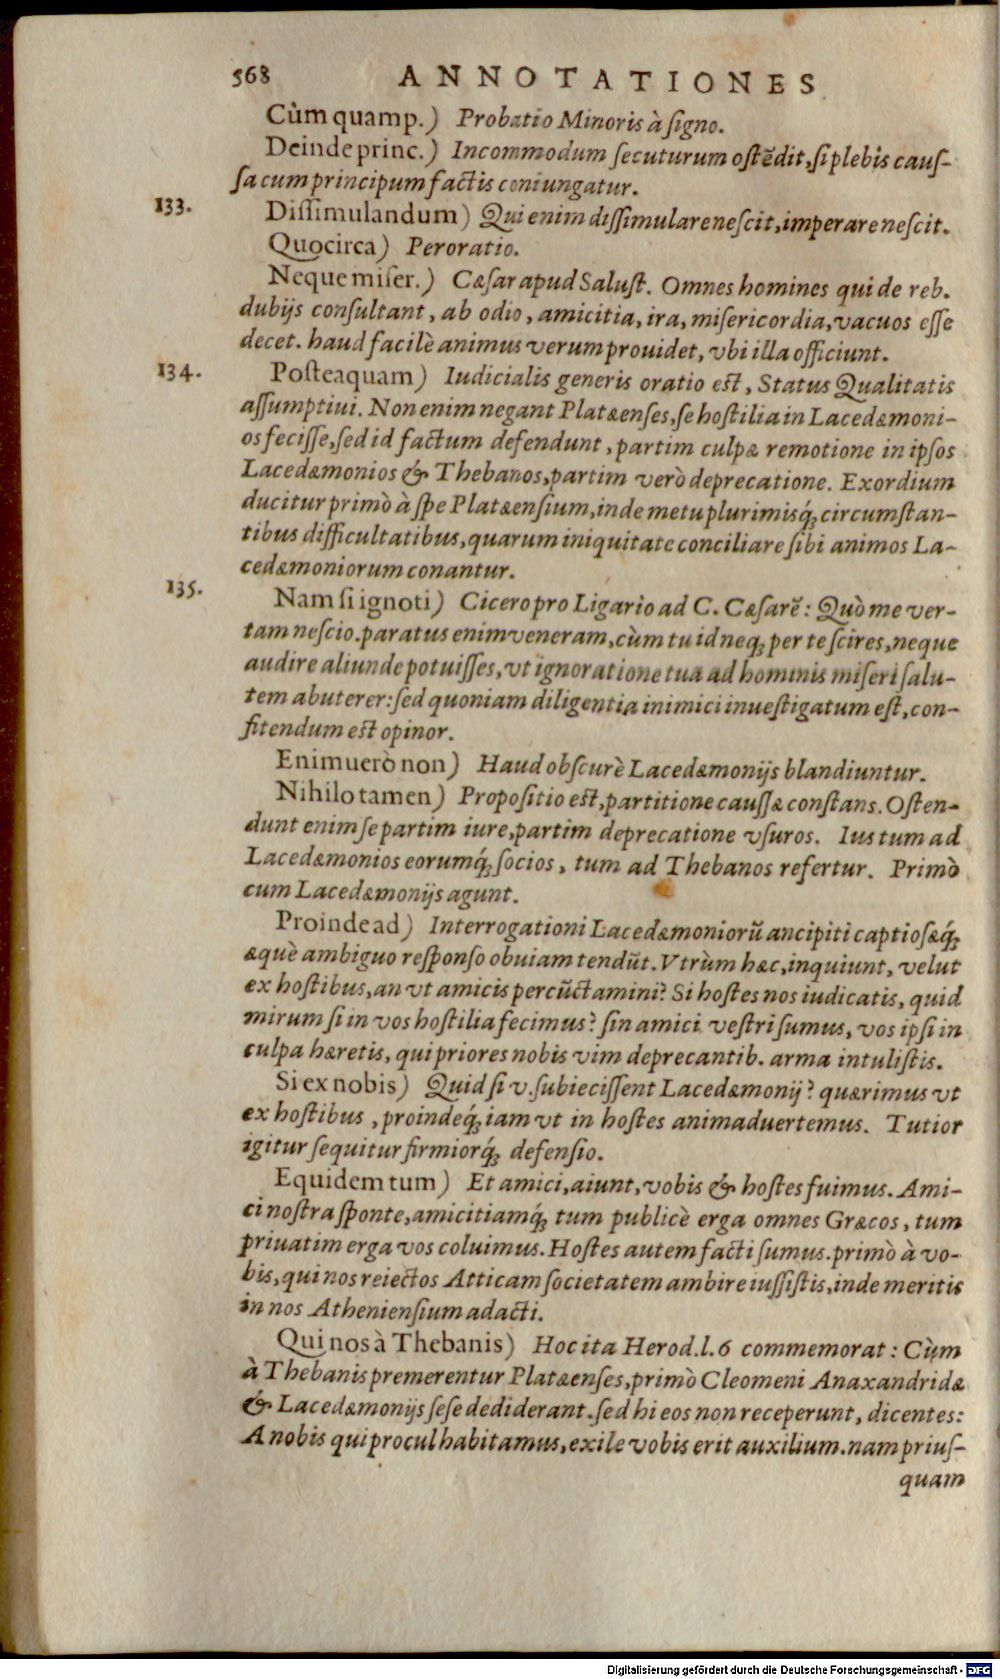 568 ANNOTATIONES
Cùm quamp.) Probatio Minoris à signo.
Deinde princ.) Incommodum secuturum ostēdit, si plebis caus-
sa cum principum factis coniungatur.
133. Dissimulandum) Qui enim dissimulare nescit, imperare nescit.
Quocirca) Peroratio.
Neque miser.) Cæsar apud Salust. Omnes homines qui de reb.
dubijs consultant, ab odio, amicitia, ira, misericordia, vacuos esse
decet. haud facilè animus verum prouidet, vbi illa officiunt.
134. Posteaquam) Iudicialis generis oratio est, Status Qualitatis
assumptiui. Non enim negant Platæenses, se hostilia in Lacedæmoni-
os fecisse, sed id factum defendunt, partim culpæ remotione in ipsos
Lacedæmonios & Thebanos, partim verò deprecatione. Exordium
ducitur primò à spe Platæensium, inde metu plurimisq́; circumstan-
tibus difficultatibus, quarum iniquitate conciliare sibi animos La-
cedæmoniorum conantur.
135. Nam si ignoti) Cicero pro Ligario ad C. Cæsarē: Quò me ver-
tam nescio. paratus enim veneram, cùm tu id neq; per te scires, neque
audire aliunde potuisses, vt ignoratione tua ad hominis miseri salu-
tem abuterer: sed quoniam diligentia inimici inuestigatum est, con-
fitendum est opinor.
Enimuerò non) Haud obscurè Lacedæmonijs blandiuntur.
Nihilo tamen) Propositio est, partitione caussæ constans. Osten-
dunt enim se partim iure, partim deprecatione vsuros. Ius tum ad
Lacedæmonios eorumq́; socios, tum ad Thebanos refertur. Primò
cum Lacedæmonijs agunt.
Proinde ad) Interrogationi Lacedæmoniorū ancipiti captiosæq́;
æquè ambiguo responso obuiam tendūt. Vtrùm hæc, inquiunt, velut
ex hostibus, an vt amicis percūctamini? Si hostes nos iudicatis, quid
mirum si in vos hostilia fecimus? sin amici vestri sumus, vos ipsi in
culpa hæretis, qui priores nobis vim deprecantib. arma intulistis.
Si ex nobis) Quid si v. subiecissent Lacedæmonij? quærimus vt
ex hostibus, proindeq́; iam vt in hostes animaduertemus. Tutior
igitur sequitur firmiorq́; defensio.
Equidem tum) Et amici, aiunt, vobis & hostes fuimus. Ami-
ci nostra sponte, amicitiamq́; tum publicè erga omnes Græcos, tum
priuatim erga vos coluimus. Hostes autem facti sumus. primò à vo-
bis, qui nos reiectos Atticam societatem ambire iussistis, inde meritis
in nos Atheniensium adacti.
Qui nos à Thebanis) Hoc ita Herod. l. 6 commemorat: Cùm
à Thebanis premerentur Platæenses, primò Cleomeni Anaxandridæ
& Lacedæmonijs sese dediderant. sed hi eos non receperunt, dicentes:
A nobis qui procul habitamus, exile vobis erit auxilium. nam prius-
quam
Digitalisierung gefördert durch die Deutsche Forschungsgemeinschaft - DFG